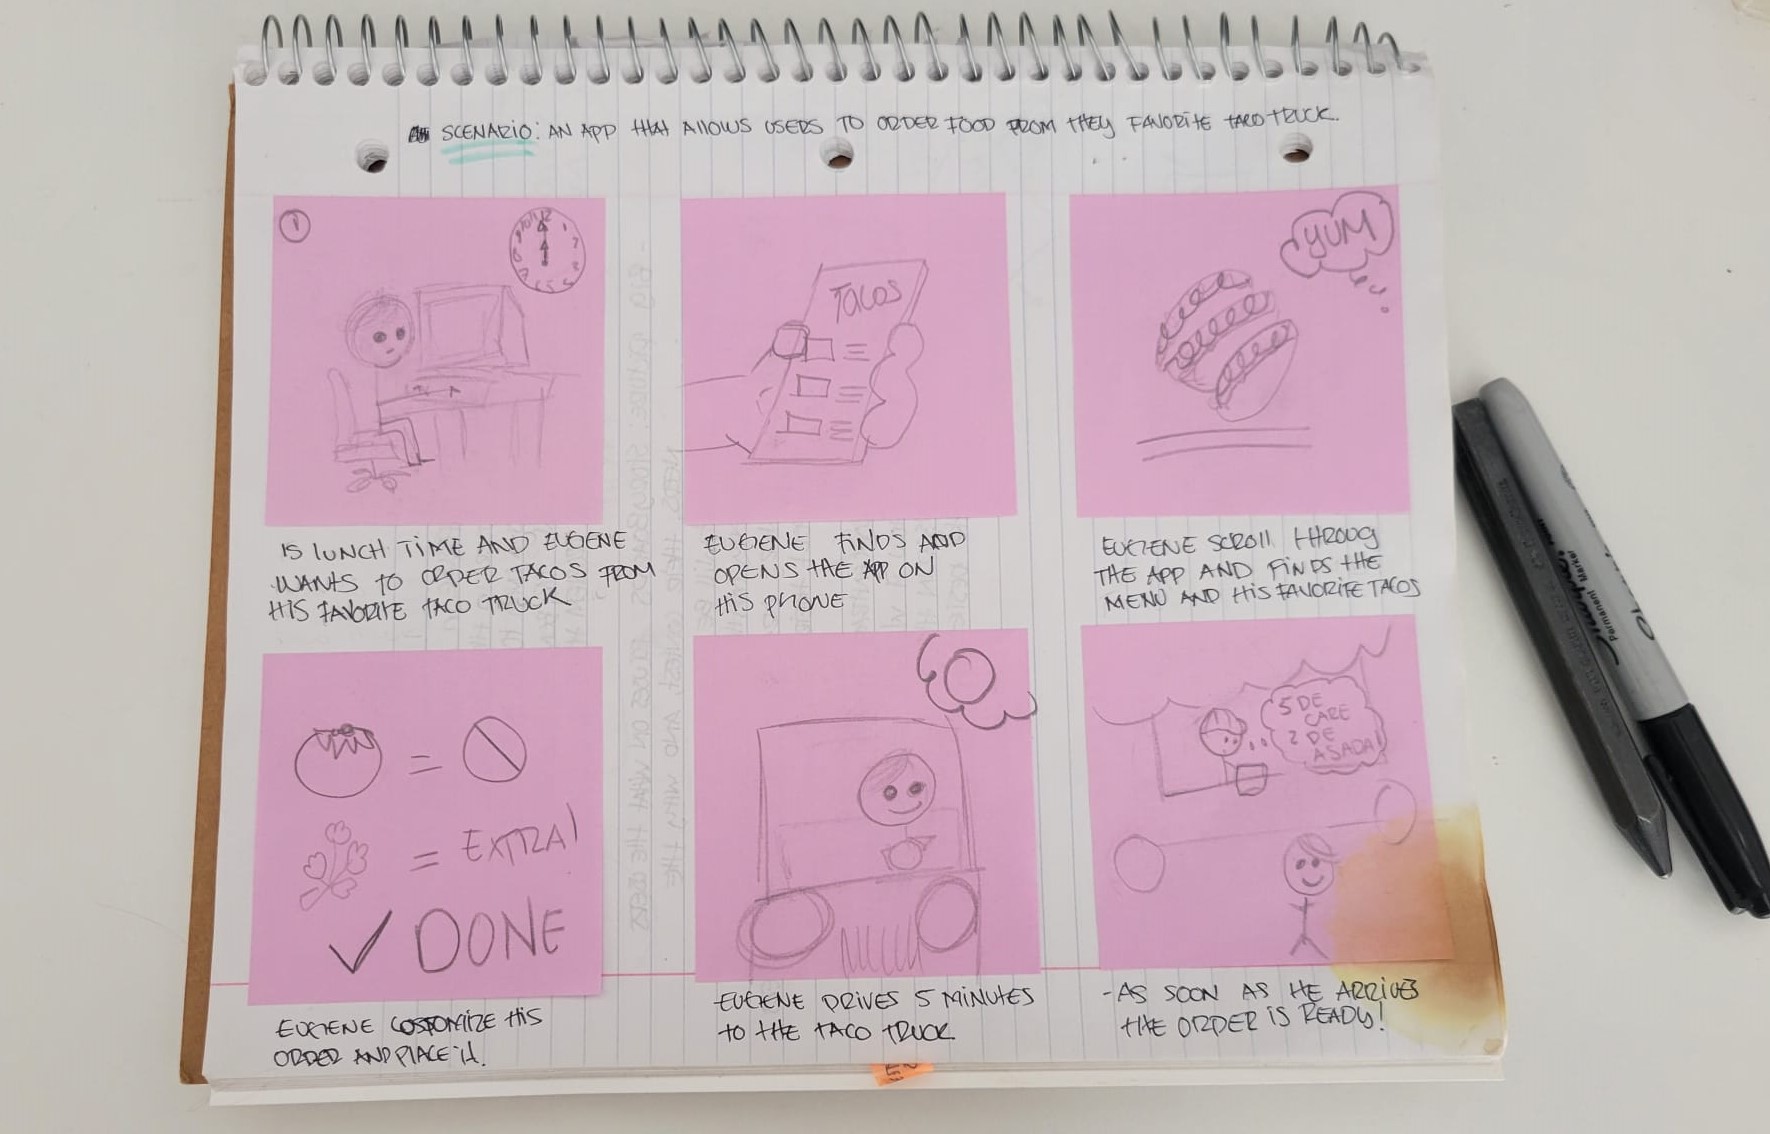 SCENARIO: AN APP THAT ALLOWS USERS TO ORDER FOOD FROM THEY FAVORITE TACO TRUCK.
1
12
TACOS
YUM
IS LUNCH TIME AND EUGENE
WANTS TO ORDER TACOS FROM
HIS FAVORITE TACO TRUCK
EUGENE FINDS AND
OPENS THE APP ON
HIS PHONE
EUGENE SCROLL THROUG
THE APP AND FINDS THE
MENU AND HIS FAVORITE TACOS
= EXTRA!
✓ DONE
5 DE
2 DE
ASADA!
EUGENE COSTOMIZE HIS
ORDER AND PLACE IT.
EUGENE DRIVES 5 MINUTES
TO THE TACO TRUCK
- AS SOON AS HE ARRIVES
THE ORDER IS READY!
Permanent Marker